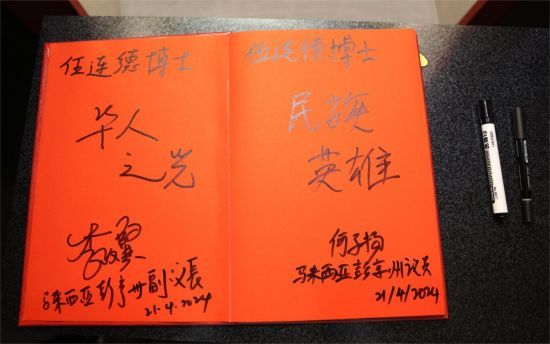 伍连德博士
华人
之光
李政贤
马来西亚彭亨州副议长
21.4.2024
伍连德博士
民族
英雄
何子扬
马来西亚彭亨州议员
21/4/2024